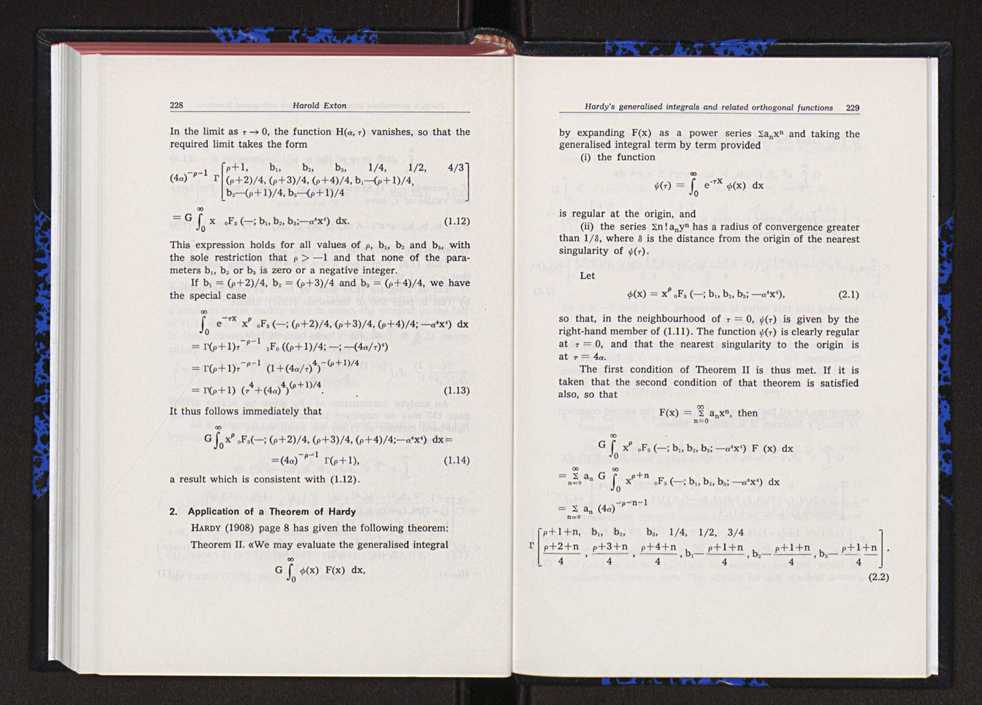 228 Harold Exton
In the limit as τ → 0, the function H(α, τ) vanishes, so that the
required limit takes the form
(4α)^{-ρ-1} Γ [ρ+1, b₁, b₂, b₃, 1/4, 1/2, 4/3
(ρ+2)/4, (ρ+3)/4, (ρ+4)/4, b₁—(ρ+1)/4,
b₂—(ρ+1)/4, b₃—(ρ+1)/4]
= G ∫₀^∞ x ₀F₃ (—; b₁, b₂, b₃;—α⁴x⁴) dx. (1.12)
This expression holds for all values of ρ, b₁, b₂ and b₃, with
the sole restriction that ρ > —1 and that none of the para-
meters b₁, b₂ or b₃ is zero or a negative integer.
If b₁ = (ρ+2)/4, b₂ = (ρ+3)/4 and b₃ = (ρ+4)/4, we have
the special case
∫₀^∞ e^{-τx} x^ρ ₀F₃ (—; (ρ+2)/4, (ρ+3)/4, (ρ+4)/4; —α⁴x⁴) dx
= Γ(ρ+1)τ^{-ρ-1} ₁F₀ ((ρ+1)/4; —; —(4α/τ)⁴)
= Γ(ρ+1)τ^{-ρ-1} (1+(4α/τ)⁴)^{-(ρ+1)/4}
= Γ(ρ+1) (τ⁴+(4α)⁴)^{(ρ+1)/4} . (1.13)
It thus follows immediately that
G ∫₀^∞ x^ρ ₀F₃(—; (ρ+2)/4, (ρ+3)/4, (ρ+4)/4;—α⁴x⁴) dx=
=(4α)^{-ρ-1} Γ(ρ+1), (1.14)
a result which is consistent with (1.12).
2. Application of a Theorem of Hardy
HARDY (1908) page 8 has given the following theorem:
Theorem II. «We may evaluate the generalised integral
G ∫₀^∞ φ(x) F(x) dx,
Hardy's generalised integrals and related orthogonal functions 229
by expanding F(x) as a power series Σaₙxⁿ and taking the
generalised integral term by term provided
(i) the function
ψ(τ) = ∫₀^∞ e^{-τx} φ(x) dx
is regular at the origin, and
(ii) the series Σn!aₙyⁿ has a radius of convergence greater
than 1/δ, where δ is the distance from the origin of the nearest
singularity of ψ(τ).
Let
φ(x) = x^ρ ₀F₃ (—; b₁, b₂, b₃; —α⁴x⁴), (2.1)
so that, in the neighbourhood of τ = 0, ψ(τ) is given by the
right-hand member of (1.11). The function ψ(τ) is clearly regular
at τ = 0, and that the nearest singularity to the origin is
at τ = 4α.
The first condition of Theorem II is thus met. If it is
taken that the second condition of that theorem is satisfied
also, so that
F(x) = Σ_{n=0}^∞ aₙxⁿ, then
G ∫₀^∞ x^ρ ₀F₃ (—; b₁, b₂, b₃; —α⁴x⁴) F (x) dx
= Σ_{n=0}^∞ aₙ G ∫₀^∞ x^{ρ+n} ₀F₃ (—; b₁, b₂, b₃; —α⁴x⁴) dx
= Σ_{n=0} aₙ (4α)^{-ρ-n-1}
Γ [ρ+1+n, b₁, b₂, b₃, 1/4, 1/2, 3/4
(ρ+2+n)/4, (ρ+3+n)/4, (ρ+4+n)/4, b₁—(ρ+1+n)/4, b₂—(ρ+1+n)/4, b₃—(ρ+1+n)/4].
(2.2)